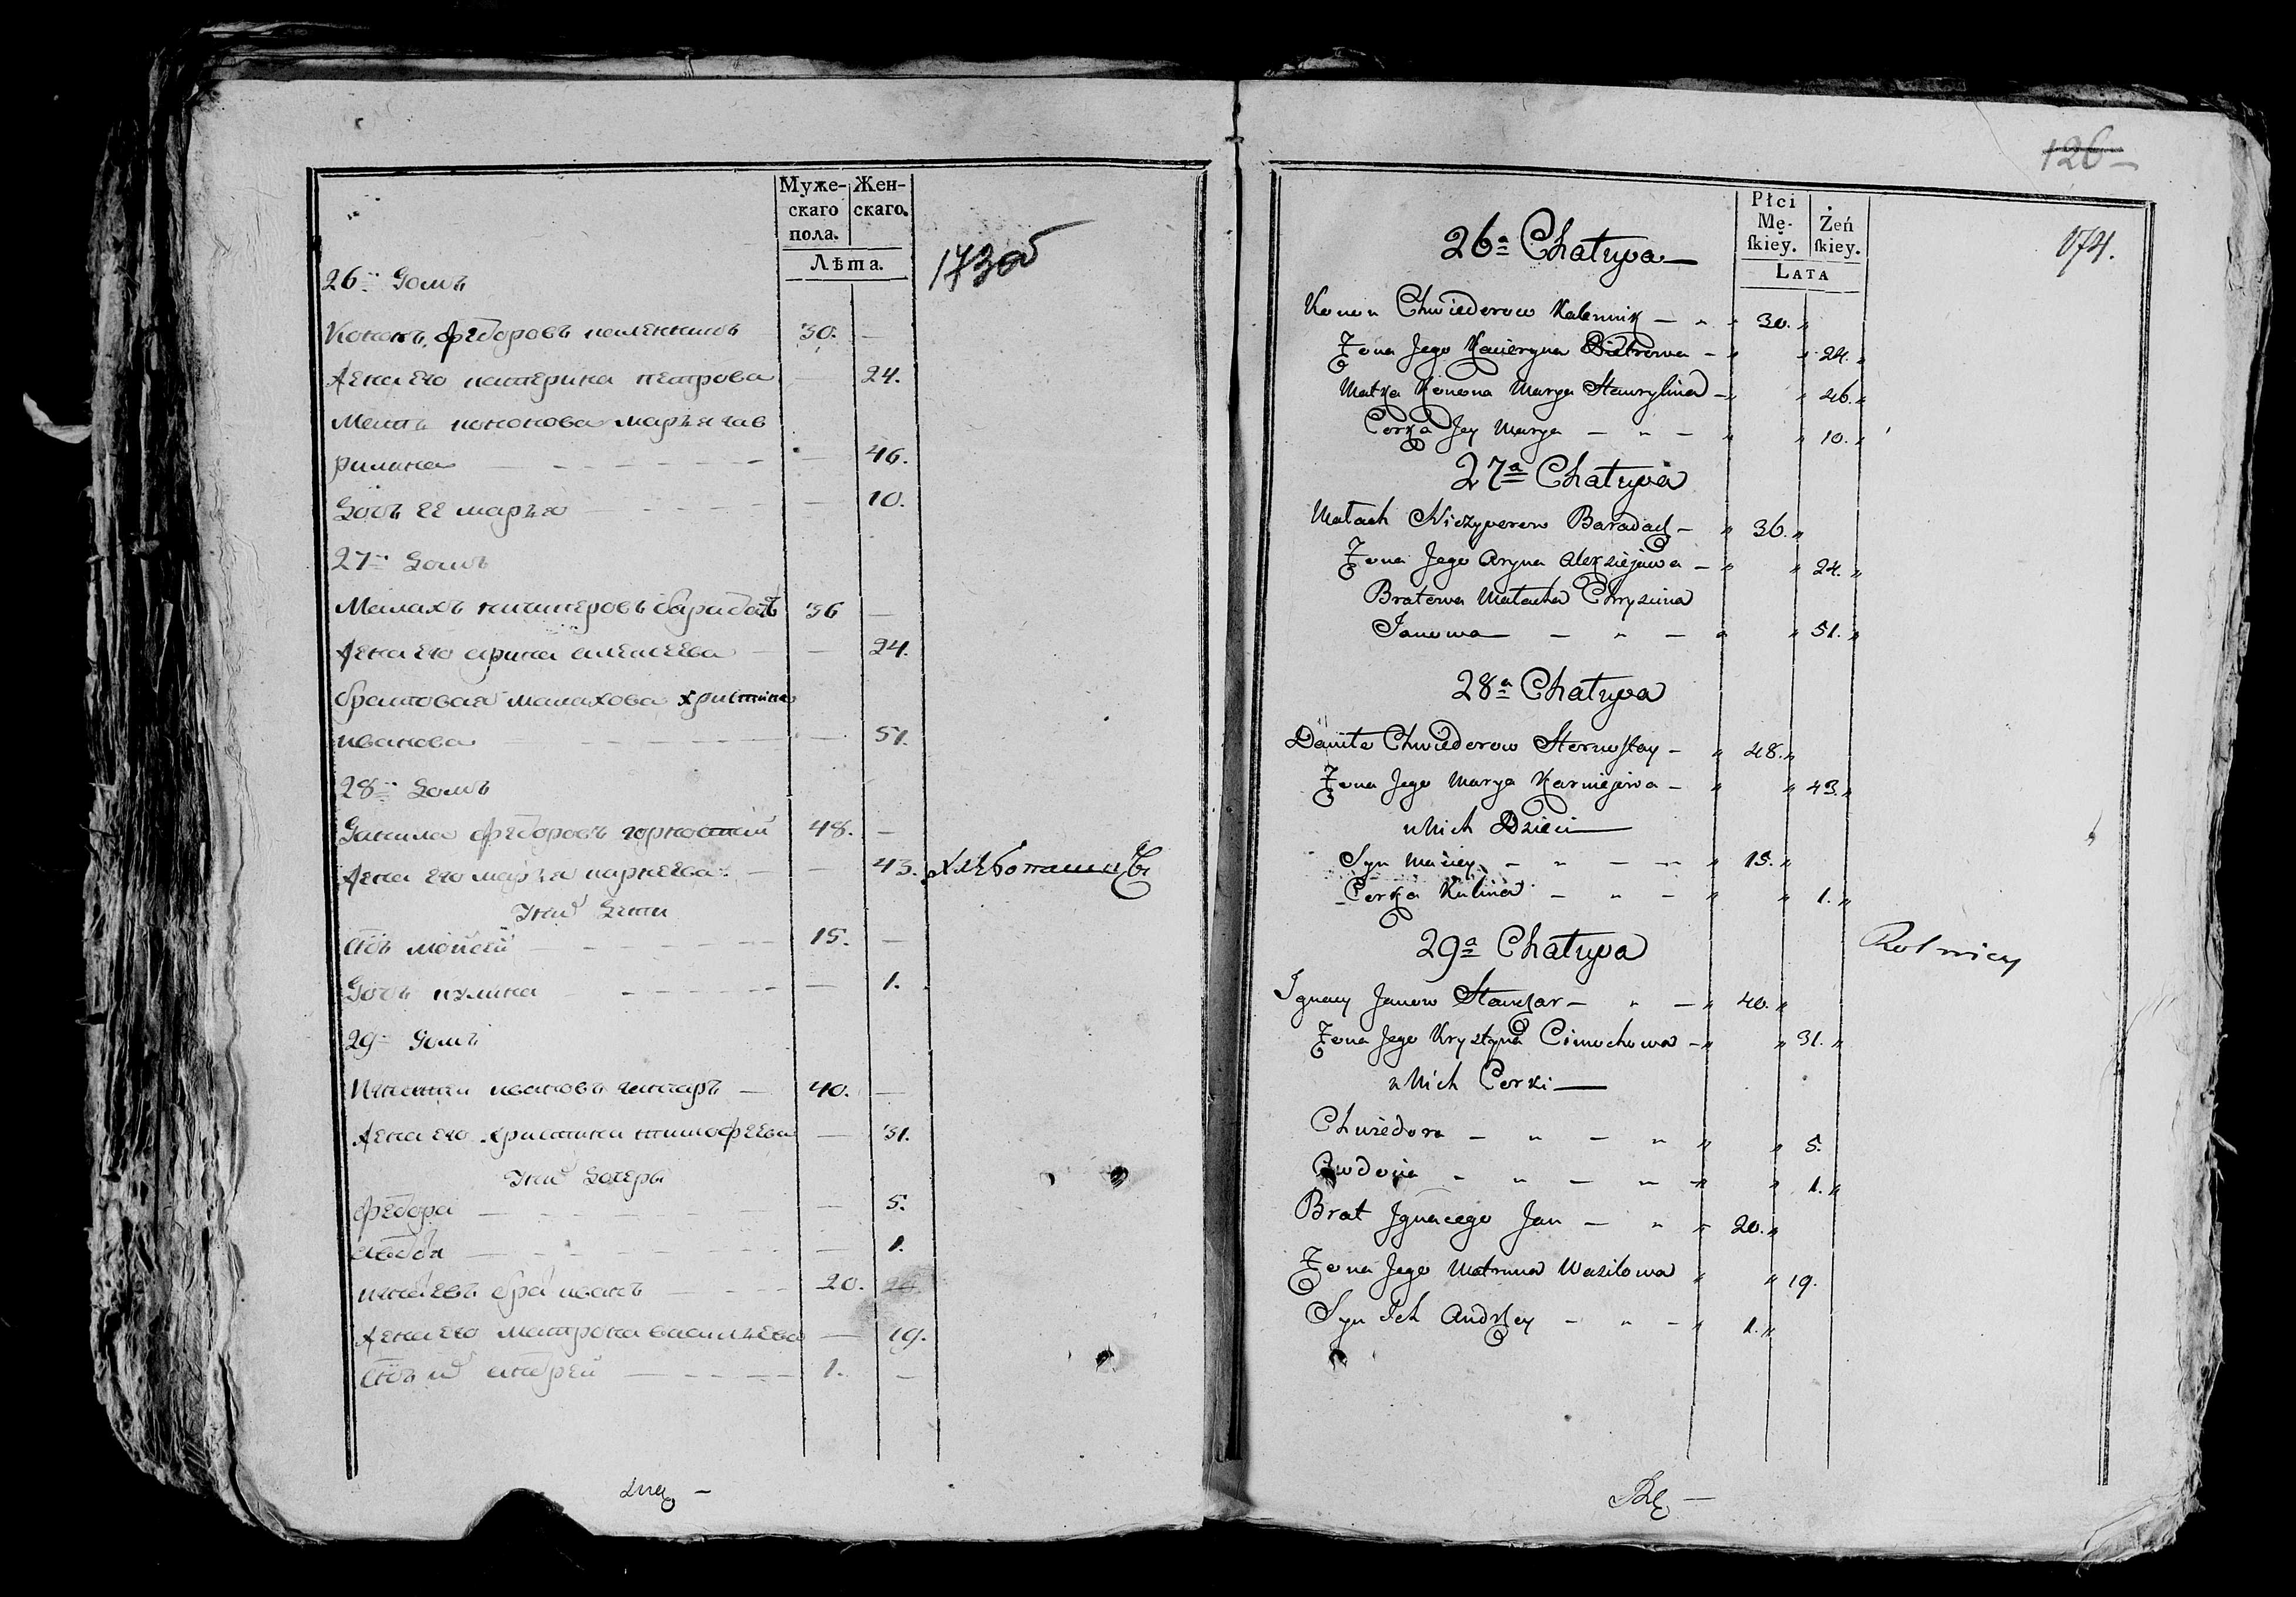 Муже-
скаго
пола.
Жен-
скаго.
Лѣта.
173об
26й Домъ
Кононъ федоровъ каленникъ 30. —
Жена его катерина петрова — 24.
Мать кононова марья гав
рилина — 46.
Дочь ее марья — 10.
27й Домъ
Малахъ ничипоровъ барадачъ 36 —
Жена его арина алексеева — 24.
братовая малахова христина
иванова — 51.
28й Домъ
Данила федоровъ горностай 48. —
Жена его марья карнеева — 43.
хлѣбопашцы
У них Дети
сынъ мойсей 15. —
Дочь кулина — 1.
29й Домъ
Игнатий ивановъ ганчаръ 40. —
Жена его христина тимофеева — 31.
У них Дочеры
федора — 5.
авдотя — 1.
игнатевъ брат иванъ 20.
Жена его матрона васильева — 19.
сынъ их андрей 1. —
126
174.
Płci
Mę-
ſkiey.
Żeń
ſkiey.
LATA
26a Chatupa
Konon Chwiederow Kalennik 30.
Zona Jego Kacieryna Pietrowa 24.
Matka Konona Marya Hawrylina 46.
Corka Jey Marya 10.
27a Chatupa
Małach Niczyperow Baradacz 36.
Zona Jego Aryna Alexiejewa 24.
Bratowa Małacha Chryscina
Janowa 51.
28a Chatupa
Daniło Chwiederow Hornostay 48.
Zona Jego Marya Karniejewa 43.
u Nich Dzieci
Syn Maisiey 15.
Corka Kulina 1.
29a Chatupa
Rolnicy
Ignacy Janow Hanczar 40.
Zona Jego Krystyna Cimochowa 31.
u Nich Corki
Chwiedora 5.
Awdocia 1.
Brat Ignacego Jan 20.
Zona Jego Matruna Wasilowa 19.
Syn Ich Andrzey 1.